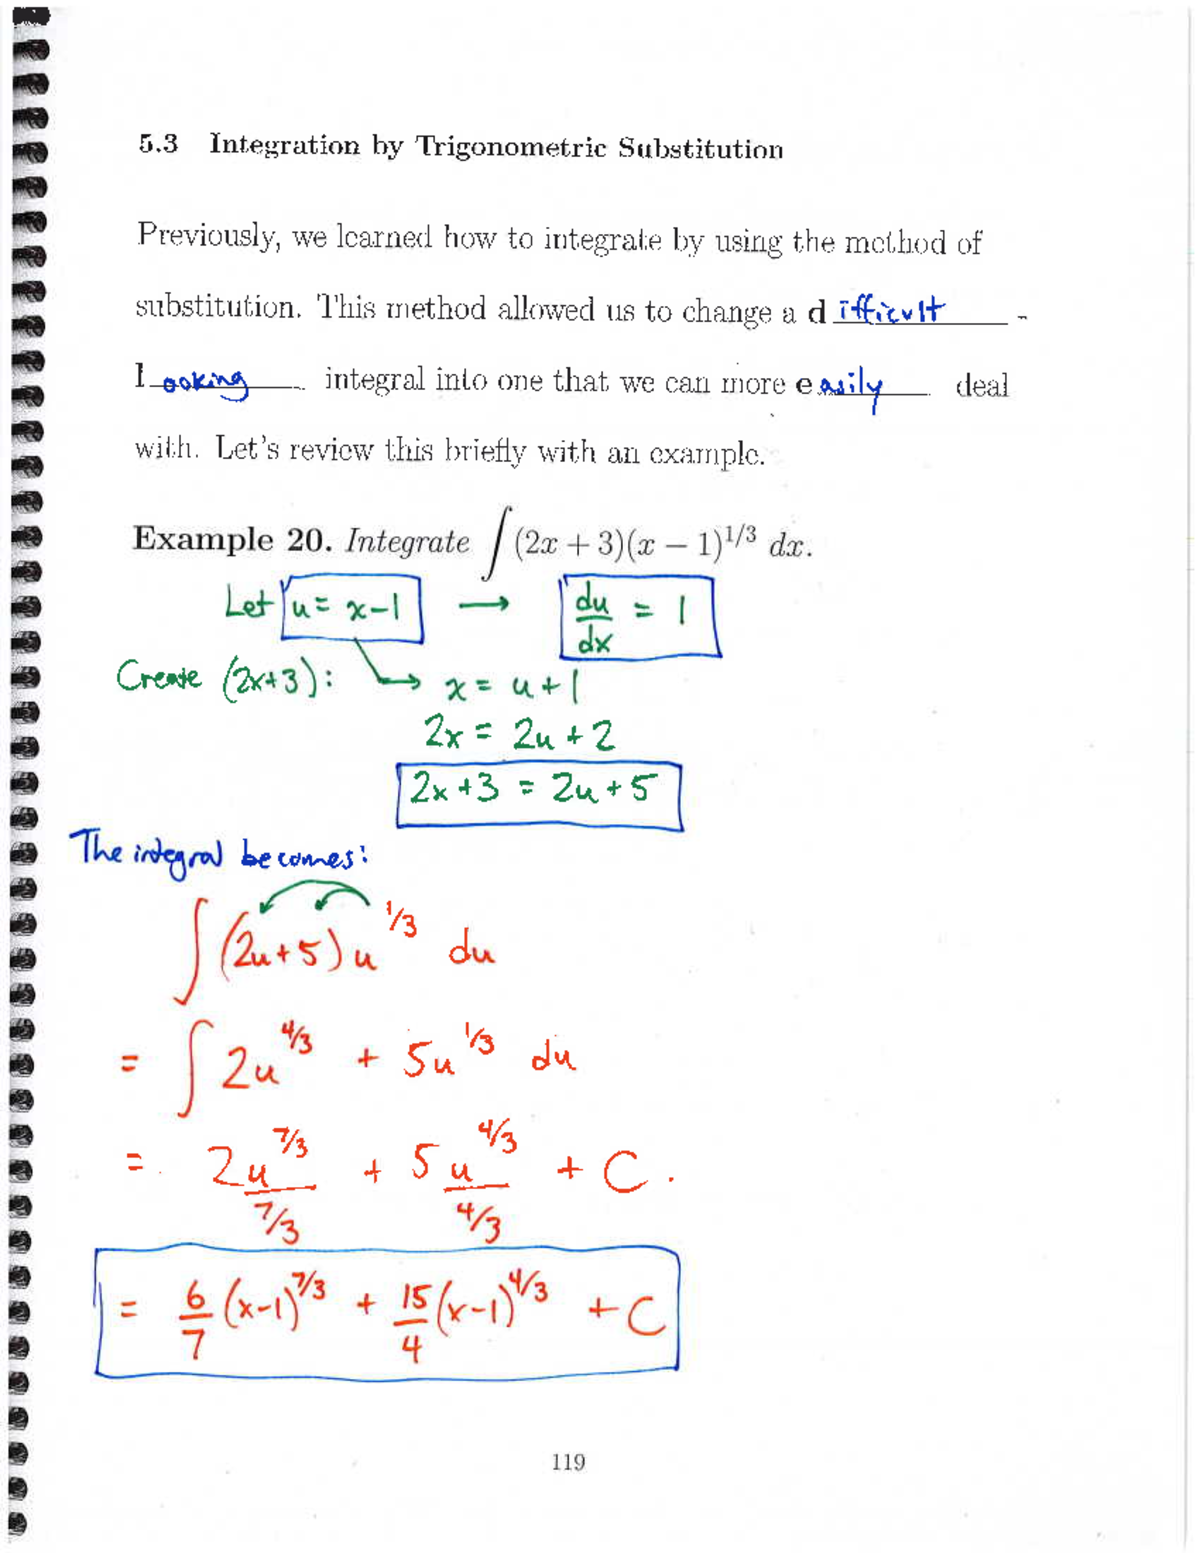 5.3 Integration by Trigonometric Substitution
Previously, we learned how to integrate by using the method of
substitution. This method allowed us to change a difficult -
looking integral into one that we can more easily deal
with. Let's review this briefly with an example.
Example 20. Integrate ∫(2x + 3)(x − 1)^{1/3} dx.
Let u = x-1 → du/dx = 1
Create (2x+3): → x = u+1
2x = 2u + 2
2x+3 = 2u+5
The integral becomes:
∫(2u+5)u^{1/3} du
= ∫ 2u^{4/3} + 5u^{1/3} du
= 2u^{7/3}/(7/3) + 5u^{4/3}/(4/3) + C.
= 6/7 (x-1)^{7/3} + 15/4 (x-1)^{4/3} + C
119